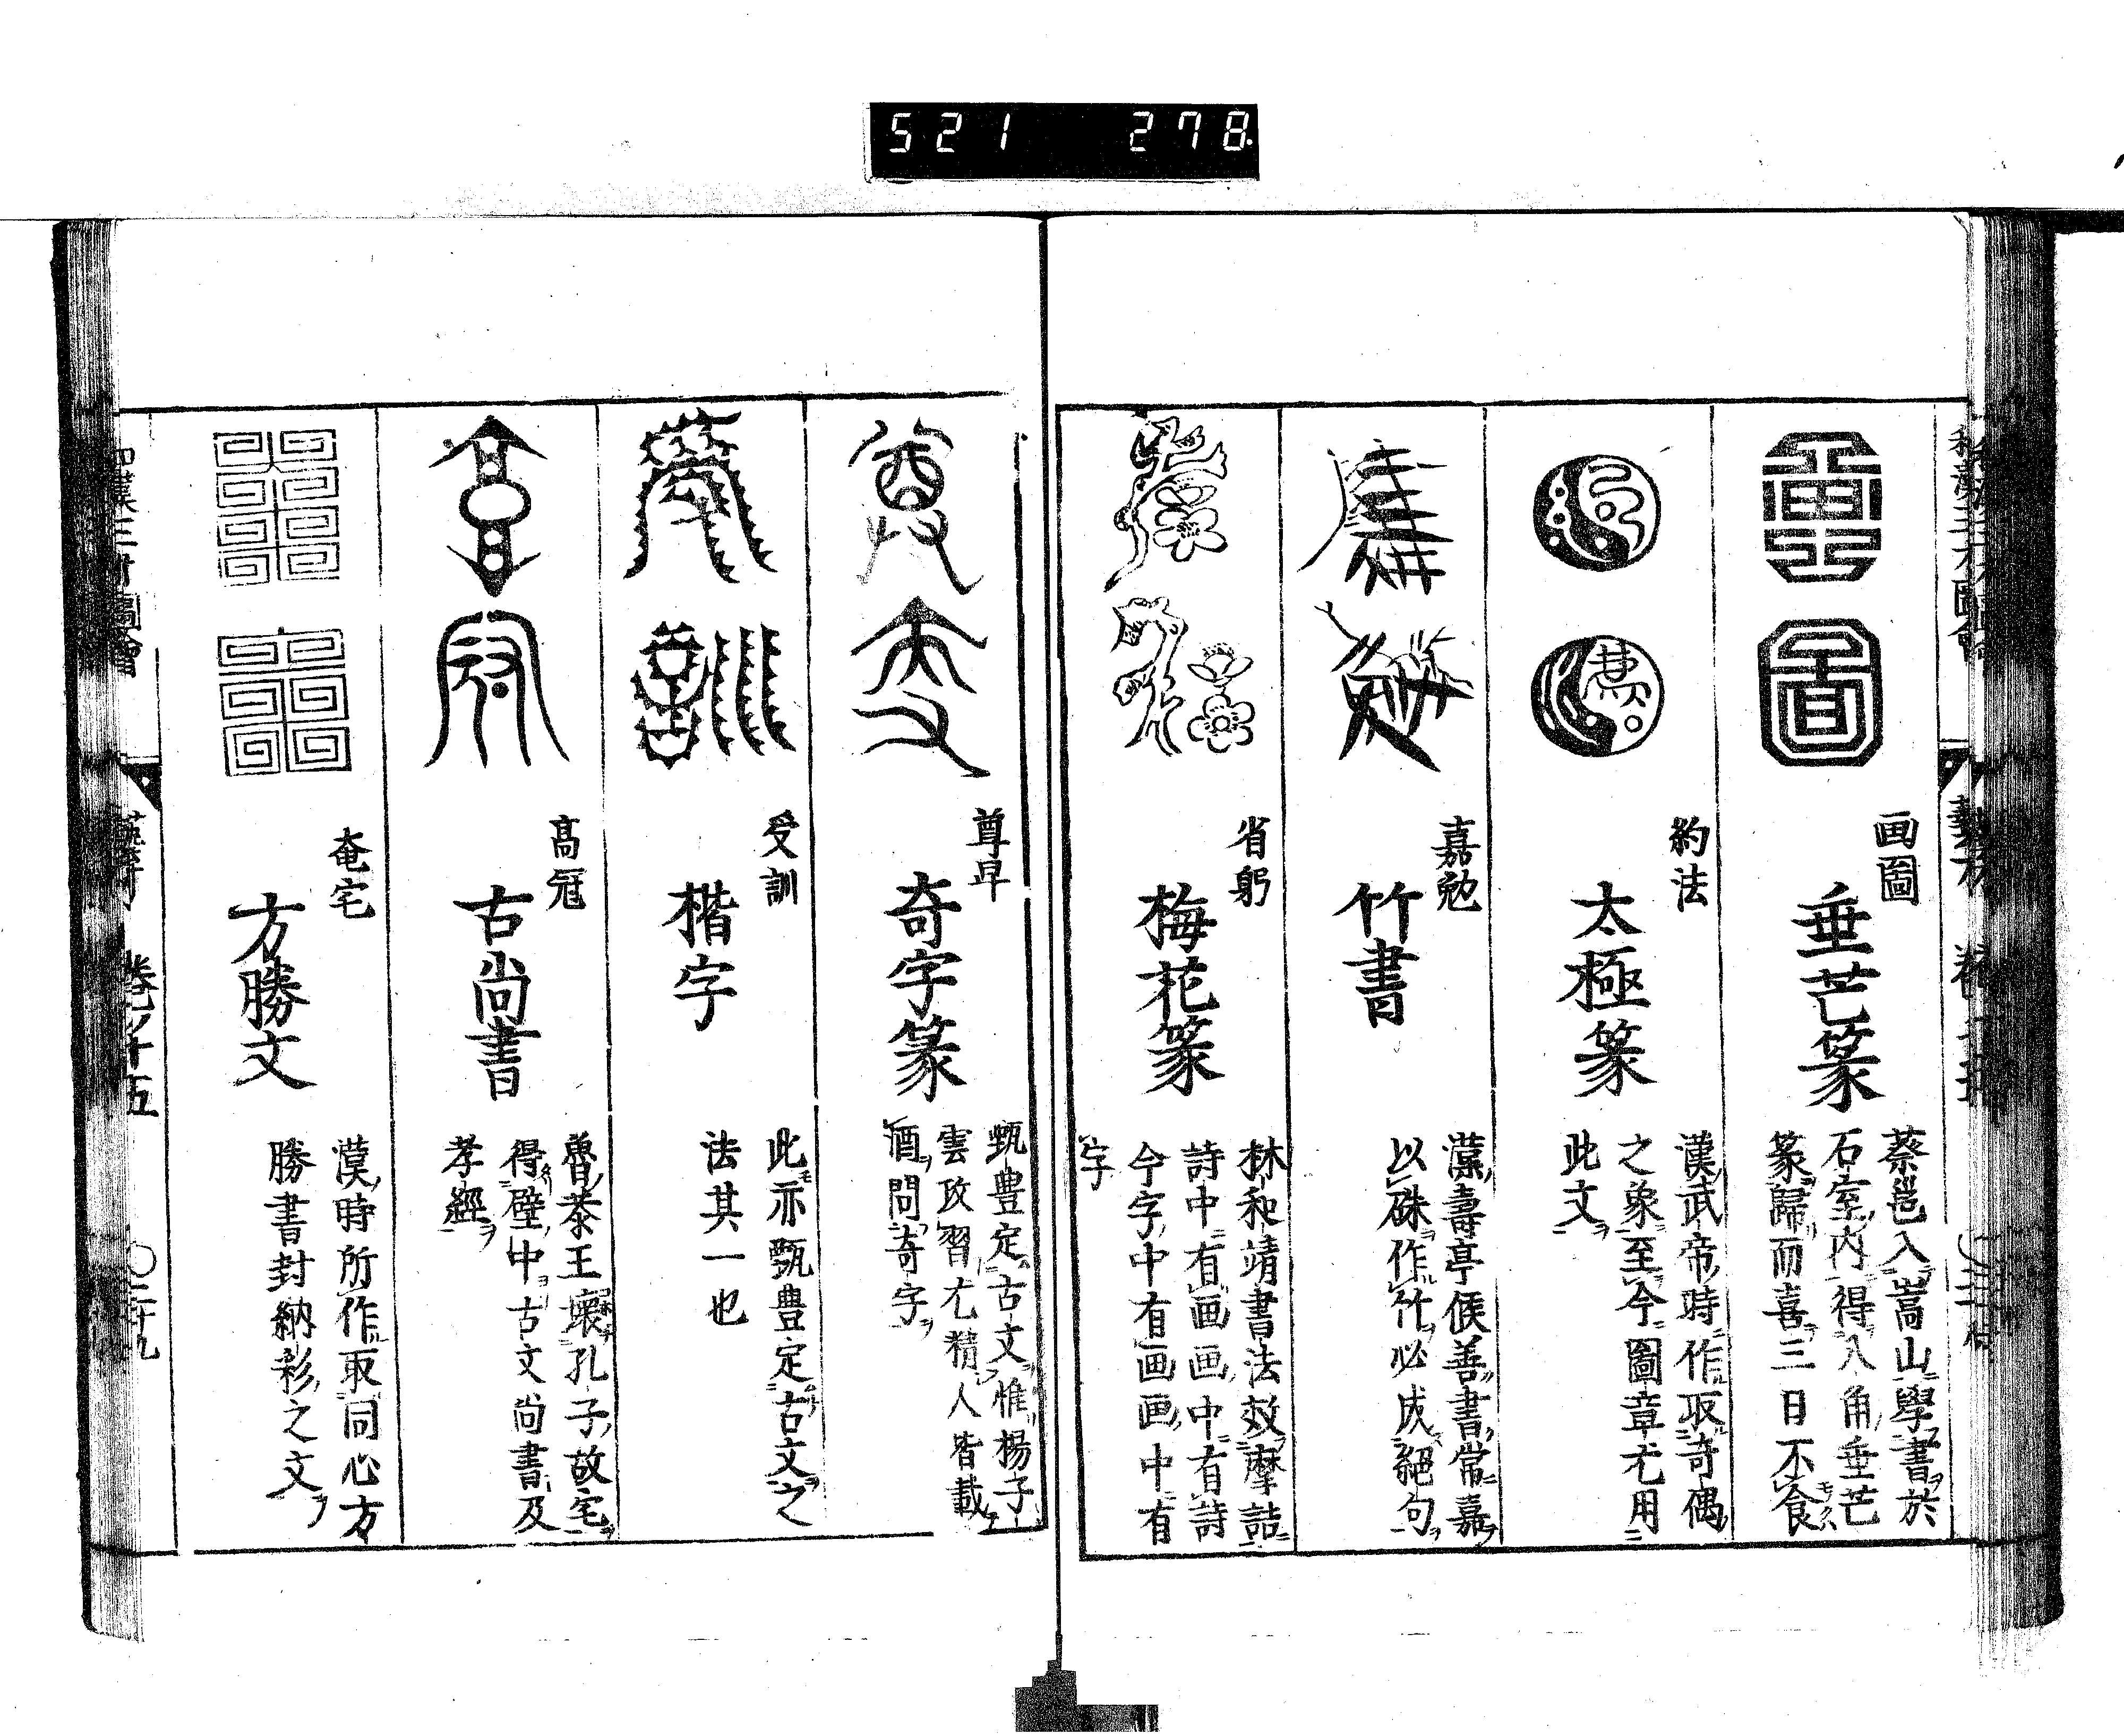 521 278
画圖
垂芒篆
蔡邕入嵩山學書於
石室內得八角垂芒
篆歸而喜三日不食
約法
太極篆
漢武帝時作取奇偶
之象至今圖章尤用
此文
嘉勉
竹書
漢壽亭候善書常嘉
以硃作竹必成絕句
省躬
梅花篆
林和靖書法效摩詰
詩中有画画中有詩
今字中有画画中有
字
尊卑
奇字篆
甄豊定古文惟楊子
雲攻習尤精人皆載
酒問奇字
受訓
楷字
此亦甄豊定古文之
法其一也
高冠
古尚書
魯恭王壞孔子故宅
得壁中古文尚書及
孝經
奄宅
方勝文
漢時所作取同心方
勝書封納彩之文
和漢三才圖會
藝才
卷ノ十五
〇二十九